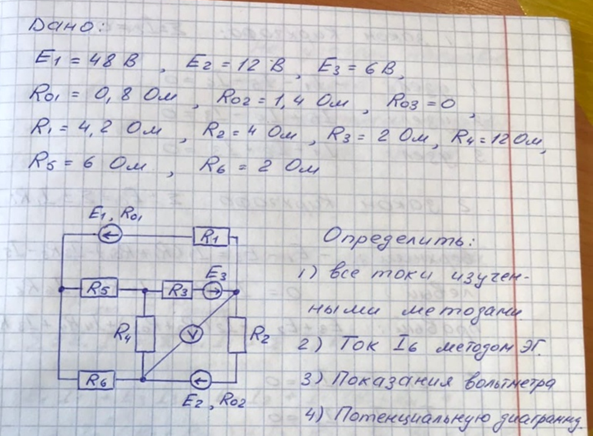 Дано:
E1 = 48 В , E2 = 12 В , E3 = 6 В,
R01 = 0,8 Ом , R02 = 1,4 Ом , R03 = 0 ,
R1 = 4,2 Ом , R2 = 4 Ом , R3 = 2 Ом, R4 = 12 Ом,
R5 = 6 Ом , R6 = 2 Ом
E1, R01
R1
Определить:
1) все токи изучен-
ными методами
2) Ток I6 методом ЭГ.
3) Показания вольтметра
4) Потенциальную диаграмму.
R5
R3
E3
R4
V
R2
R6
E2, R02